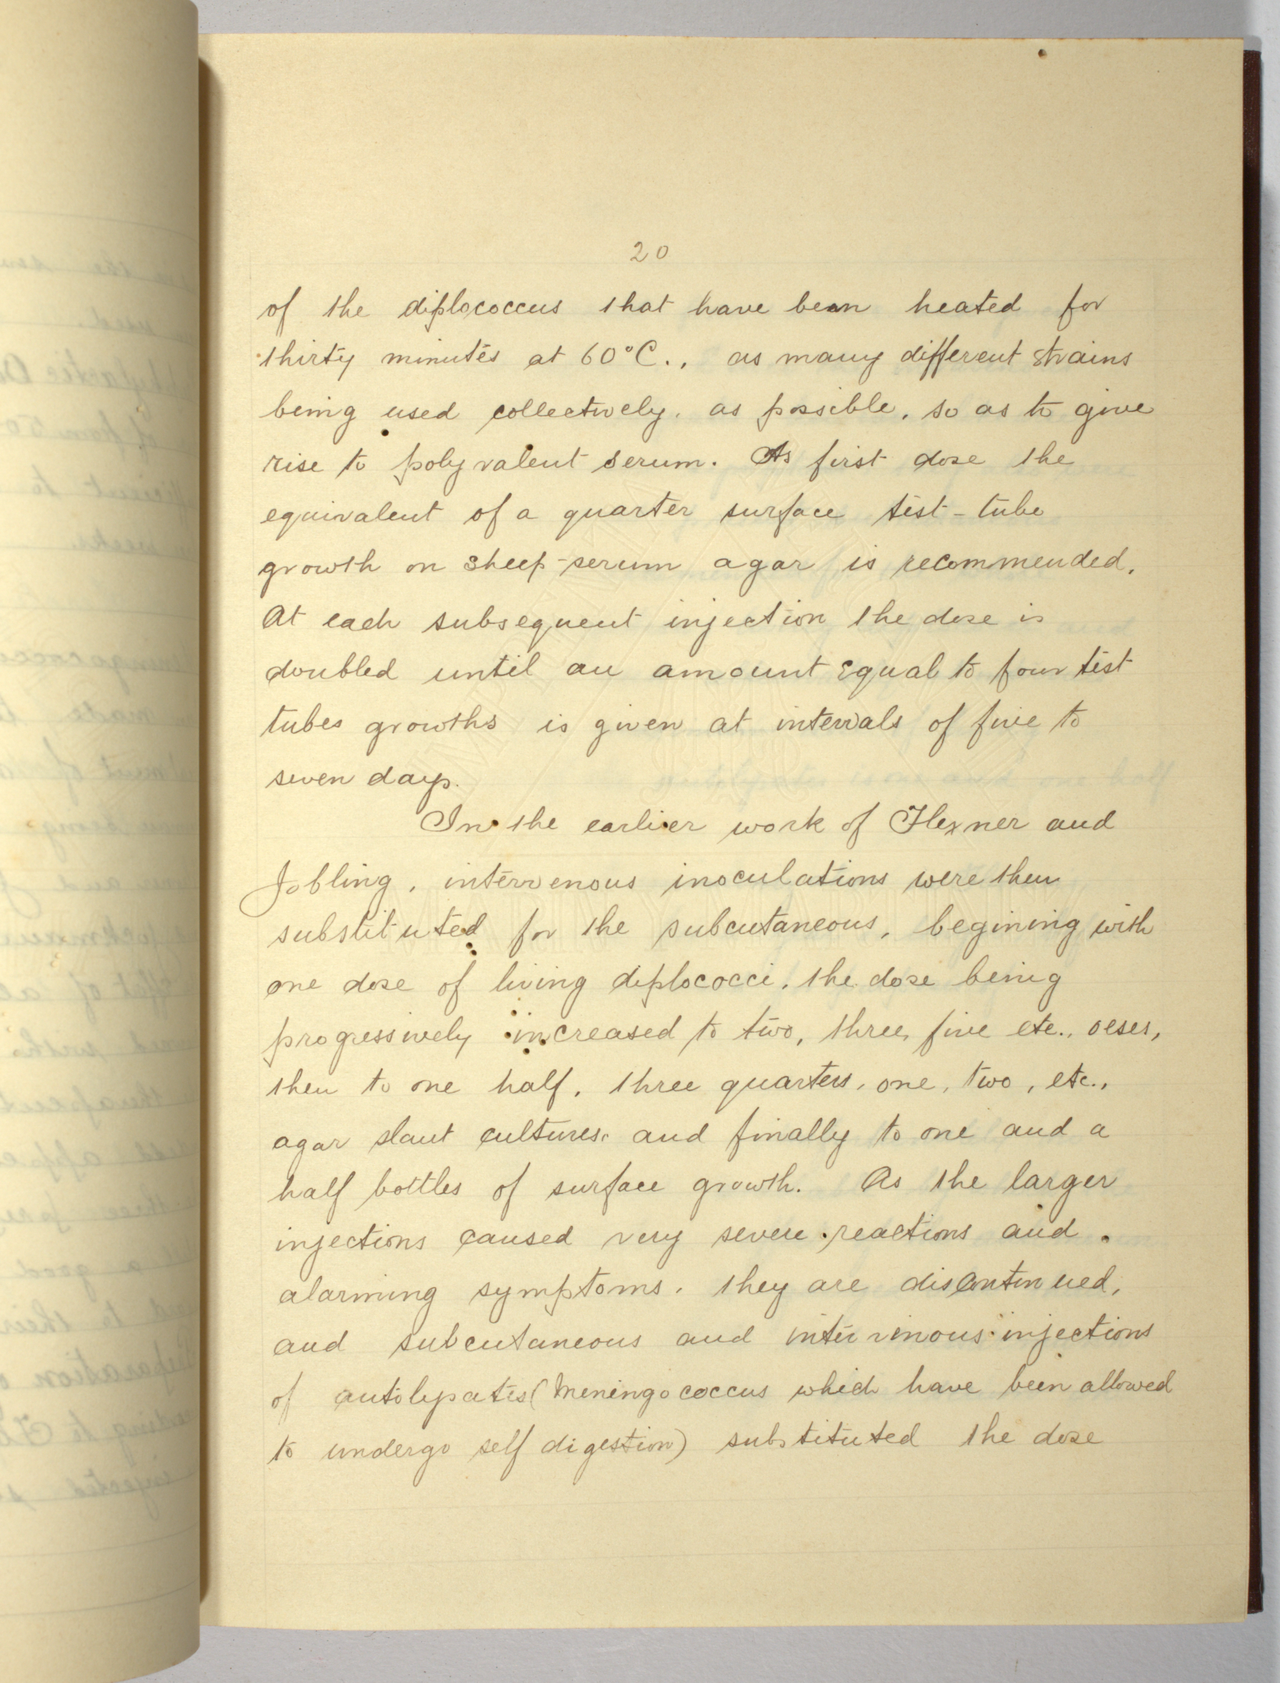 20
of the diplococcus that have been heated for
thirty minutes at 60°C., as many different strains
being used collectively, as possible, so as to give
rise to polyvalent serum. As first dose the
equivalent of a quarter surface test-tube
growth on sheep-serum agar is recommended.
At each subsequent injection the dose is
doubled until an amount equal to four test
tubes growths is given at intervals of five to
seven days.
In the earlier work of Flexner and
Jobling, intervenous inoculations were then
substituted for the subcutaneous, begining with
one dose of living diplococci, the dose being
progressively increased to two, three, five etc., oeses,
then to one half, three quarters, one, two, etc.,
agar slant cultures, and finally to one and a
half bottles of surface growth. As the larger
injections caused very severe reactions and
alarming symptoms, they are discontinued,
and subcutaneous and intervinous injections
of autolysates (Meningococcus which have been allowed
to undergo self digestion) substituted the dose